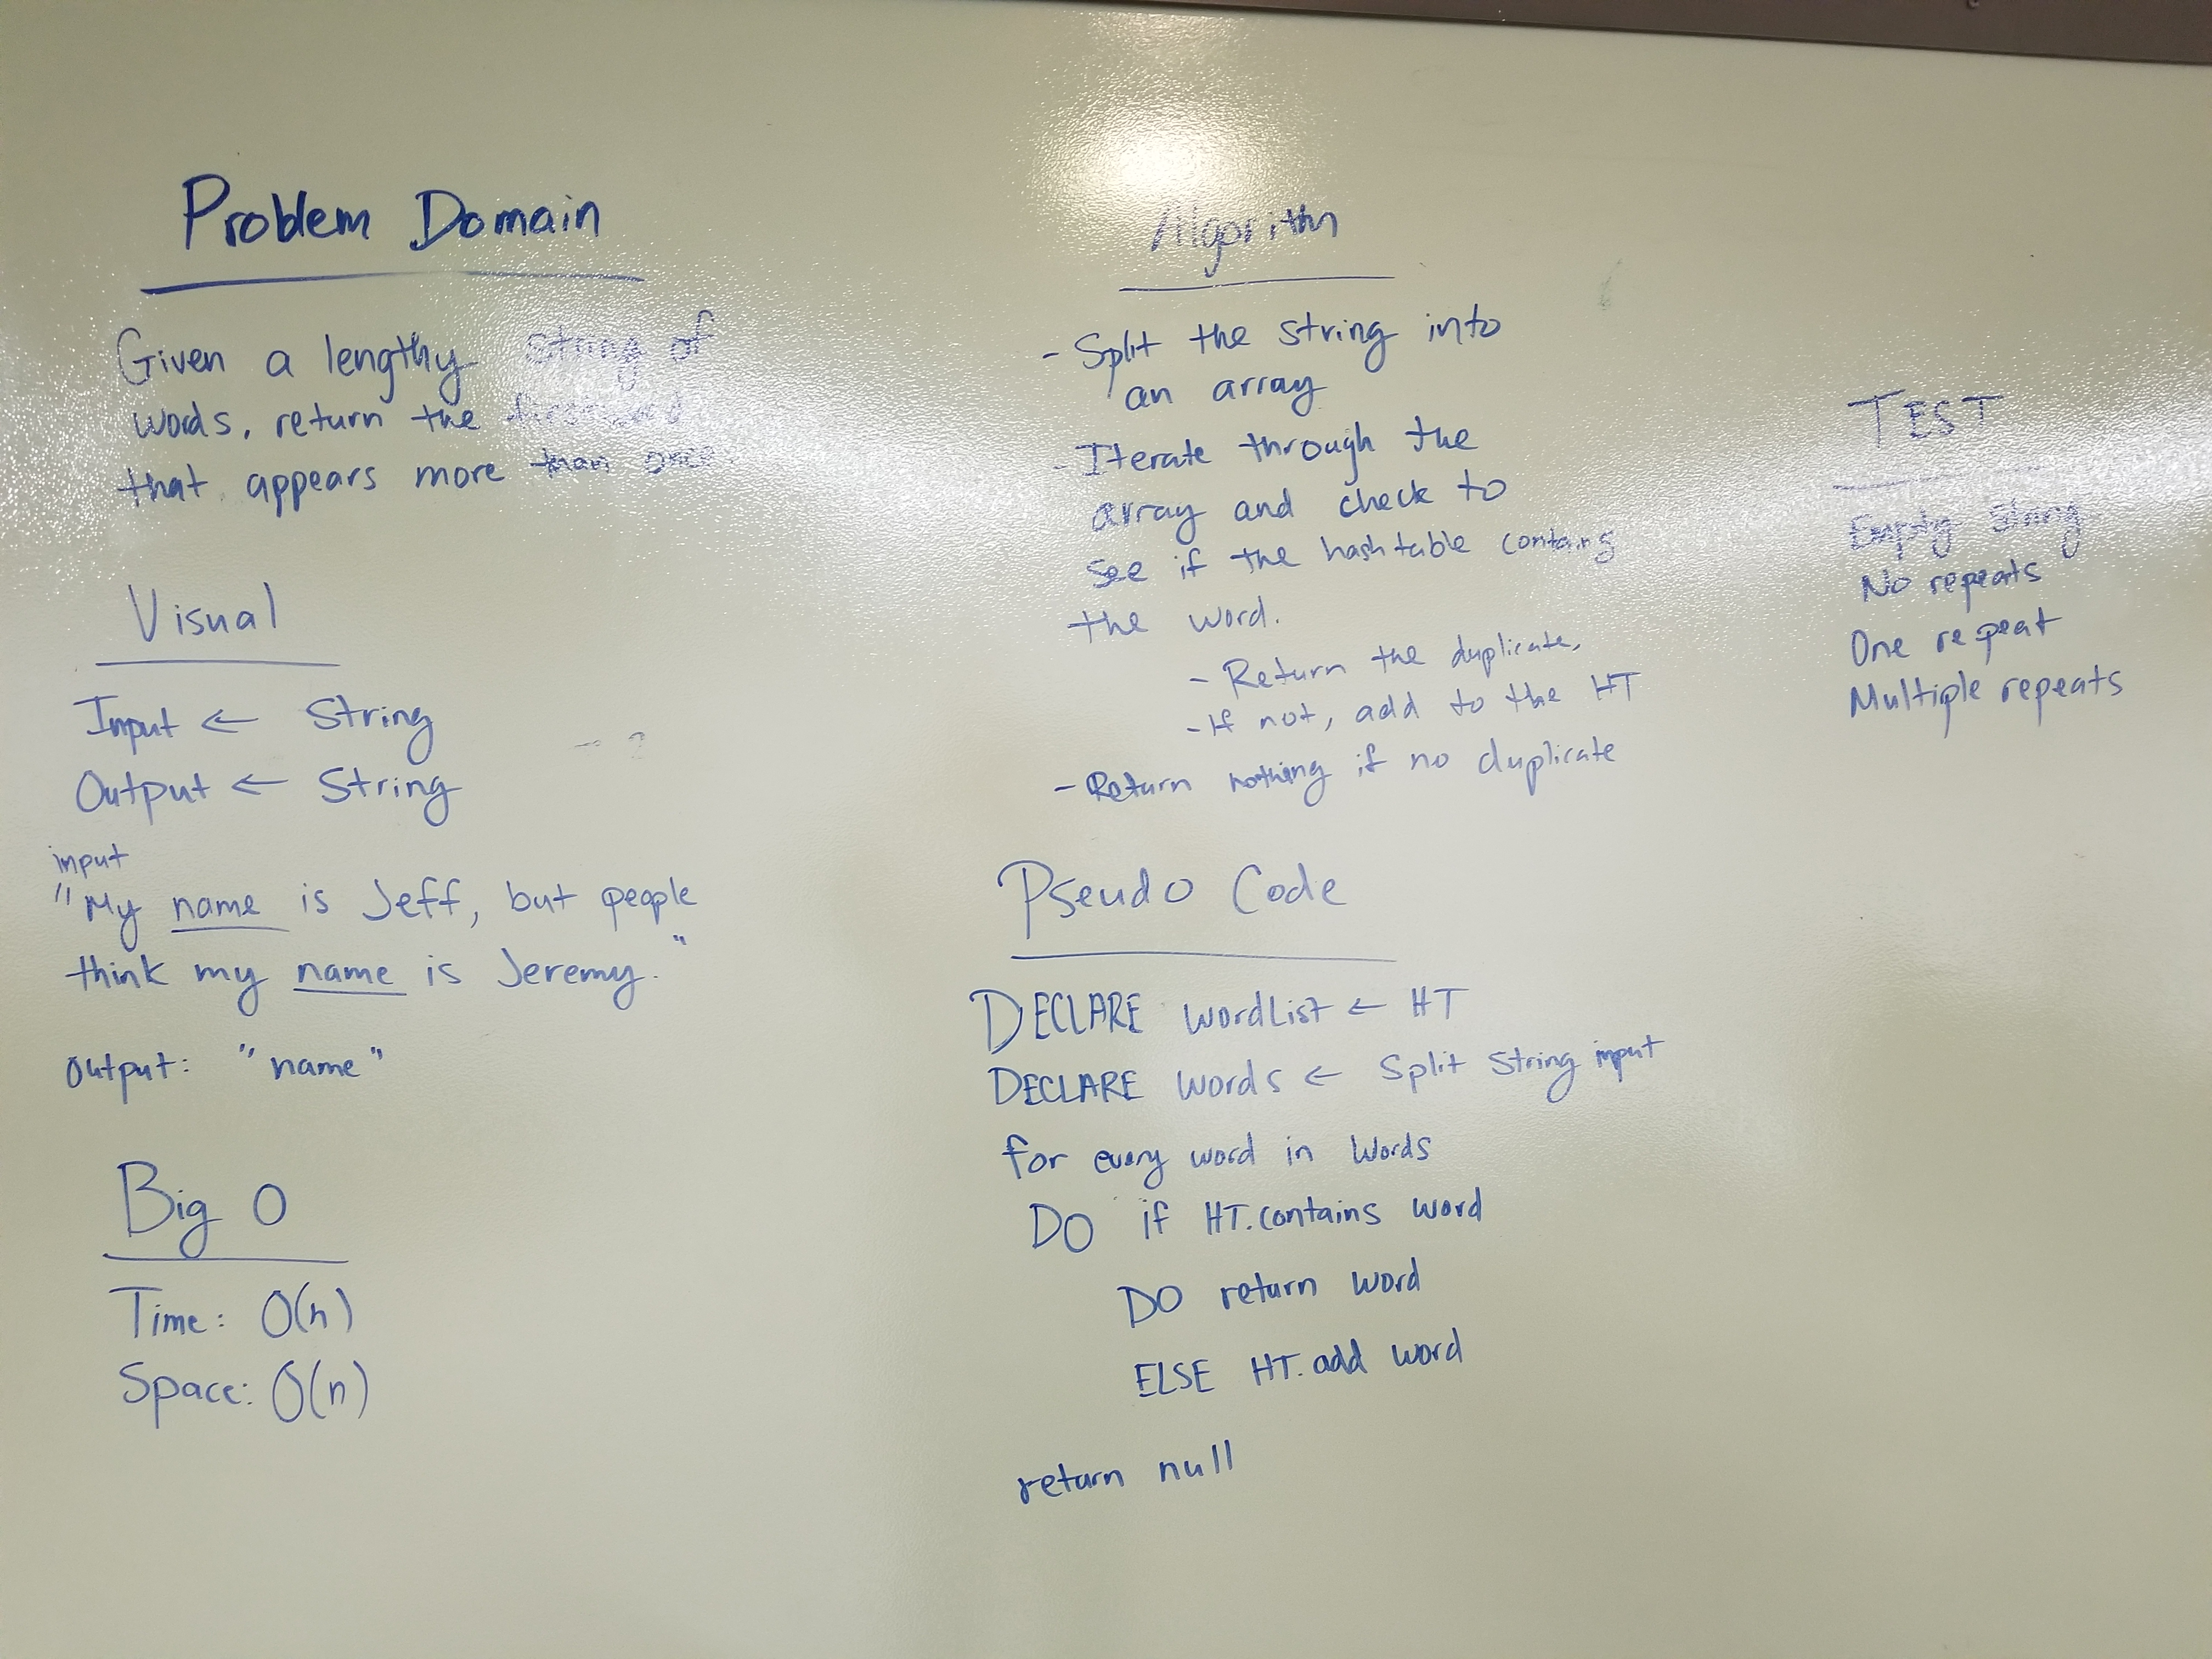 Problem Domain
Given a lengthy string of
words, return the first word
that appears more than once
Visual
Input ← String
Output ← String
input
"My name is Jeff, but people
think my name is Jeremy."
Output: "name"
Big O
Time: O(n)
Space: O(n)
Algorithm
- Split the string into
an array
- Iterate through the
array and check to
see if the hashtable contains
the word.
- Return the duplicate.
- If not, add to the HT
- Return nothing if no duplicate
Pseudo Code
DECLARE wordList ← HT
DECLARE words ← Split String input
for every word in words
DO if HT.contains word
DO return word
ELSE HT.add word
return null
TEST
Empty string
No repeats
One repeat
Multiple repeats